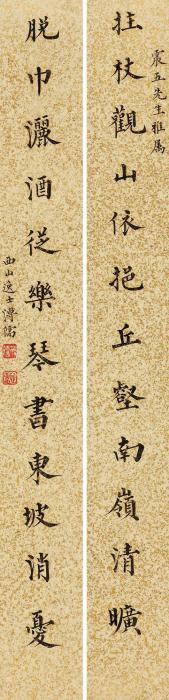 震五先生雅属
拄杖觀山依挹丘壑南嶺清曠
脱巾灑酒従樂琴書東坡消憂
西山逸士溥儒